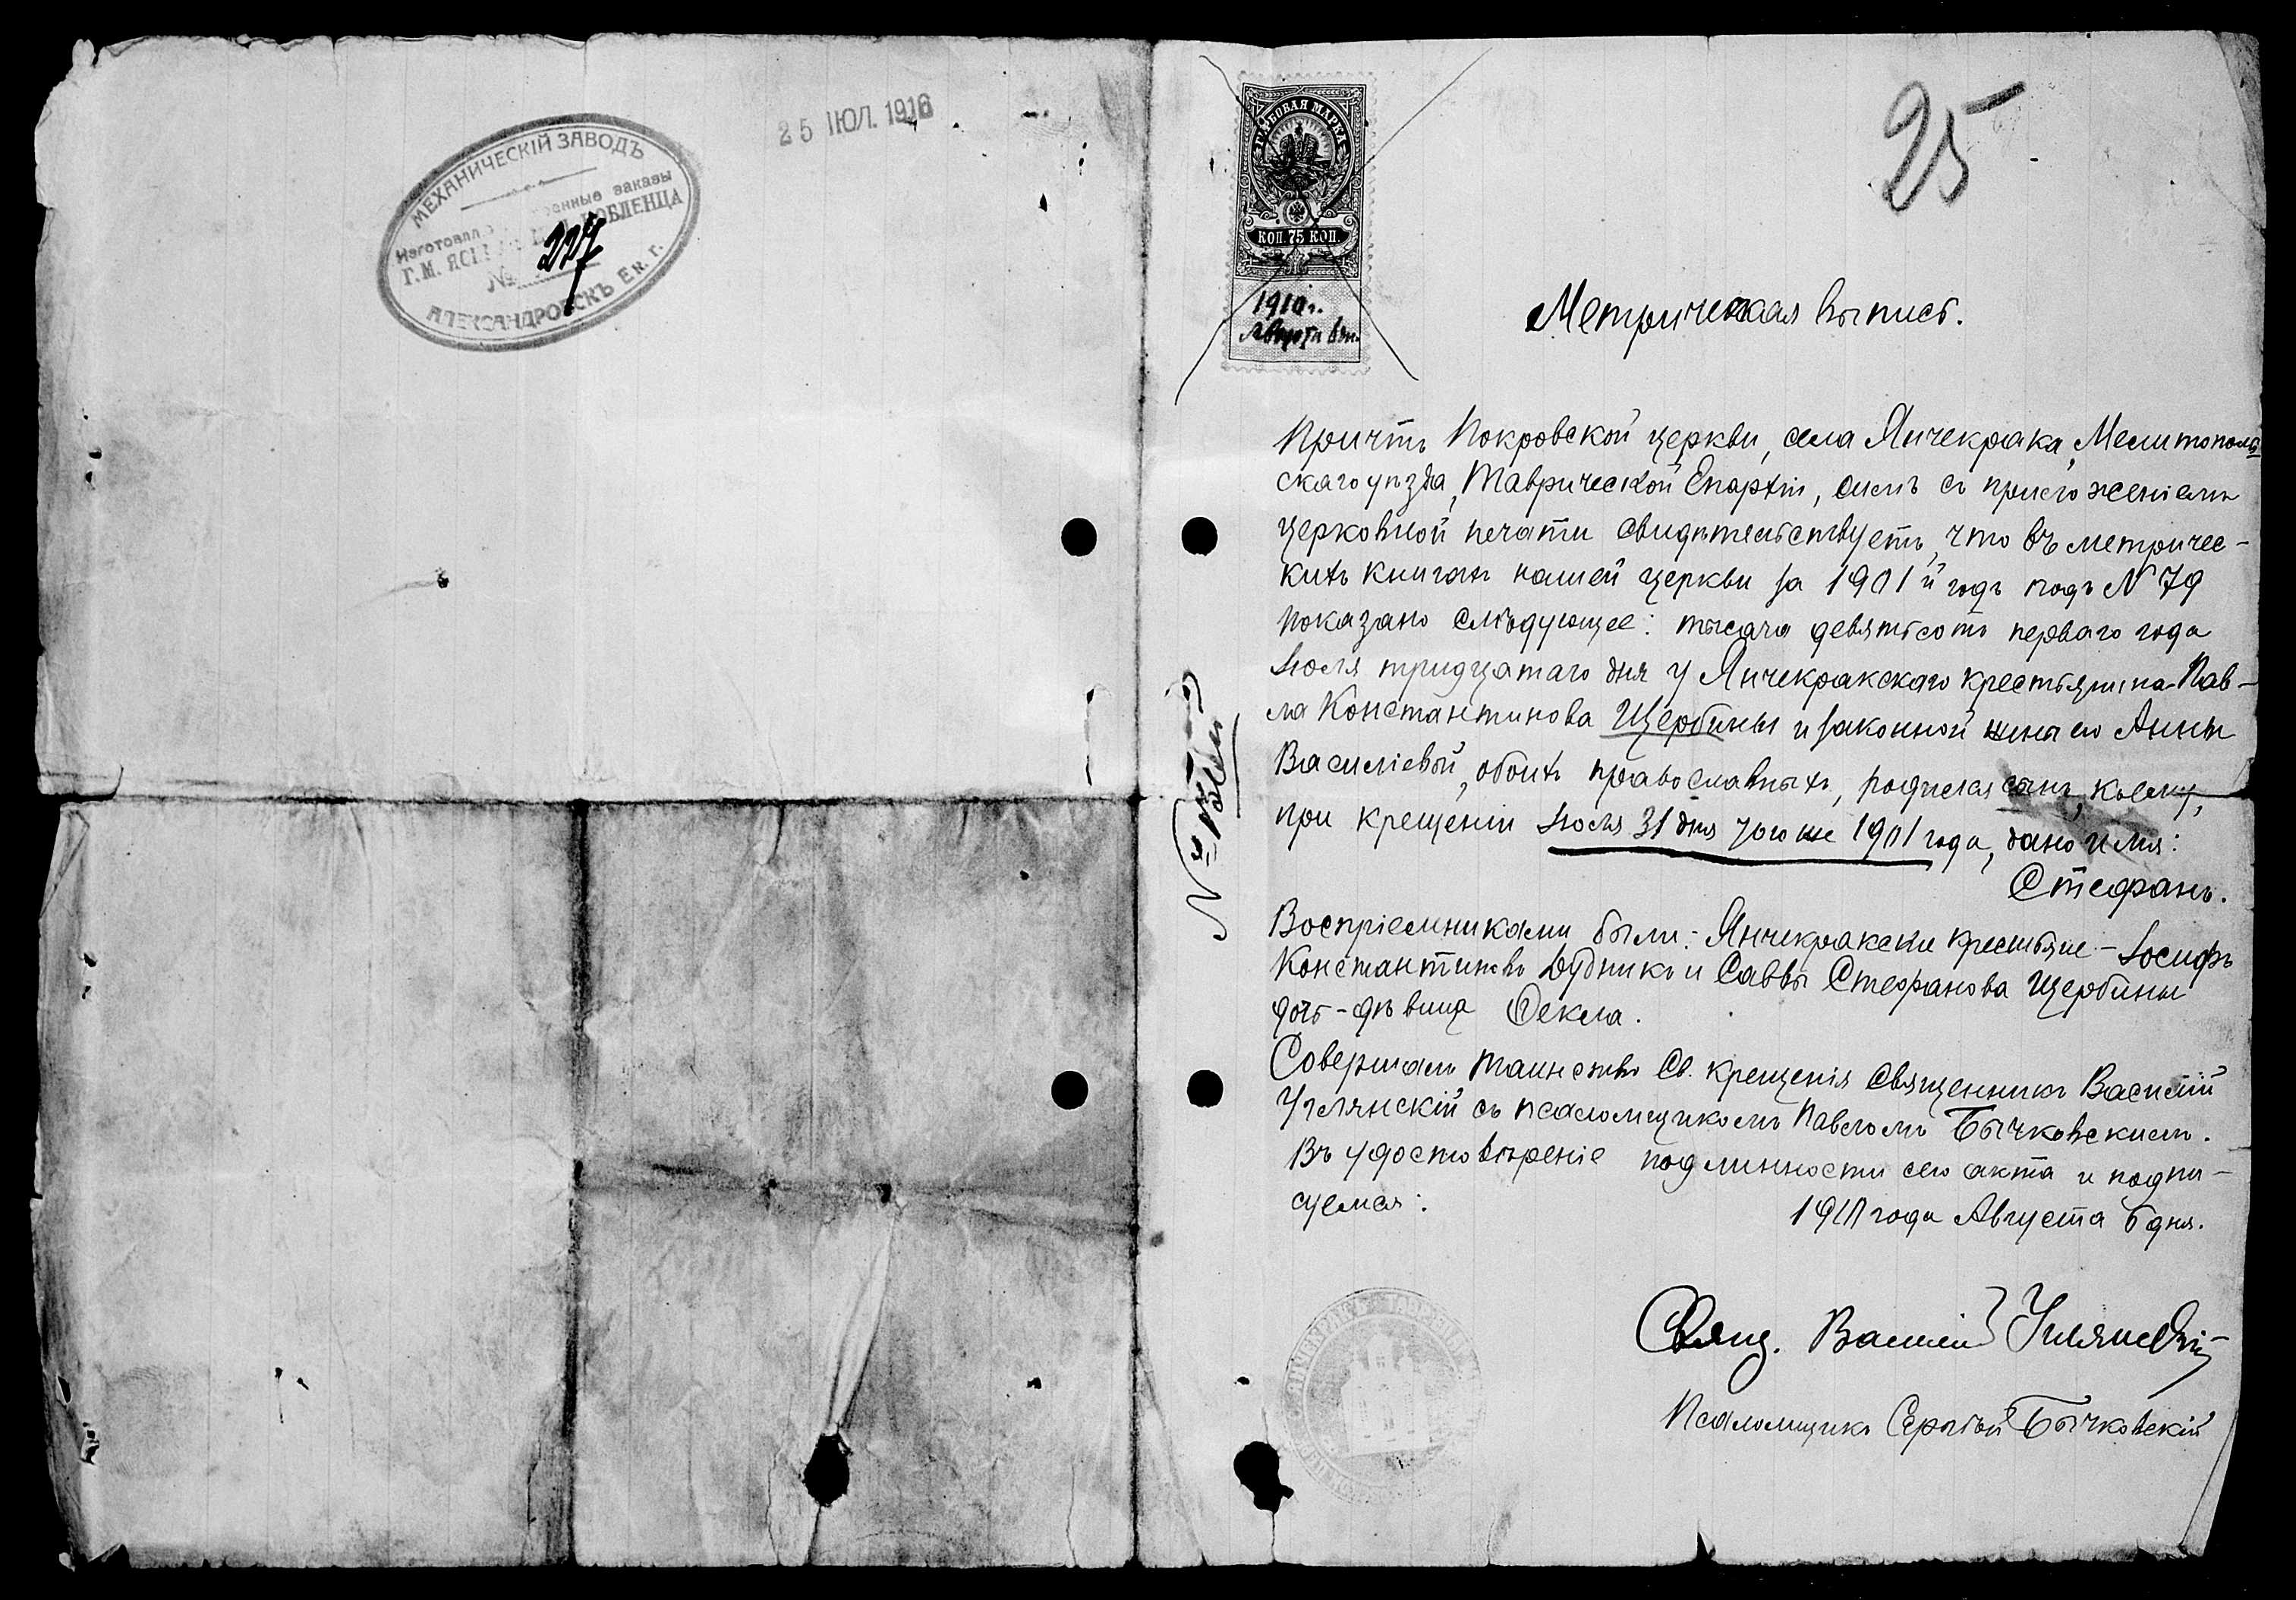 МЕХАНИЧЕСКІЙ ЗАВОДЪ
заказы
Г.М.
№ 227
АЛЕКСАНДРОВСКЪ Ек. г.
25 ІЮЛ. 1916
ГЕРБОВАЯ МАРКА
КОП. 75 КОП.
1910 г.
Августа 6 дн.
25
Метрическая выпись.
Причтъ Покровской церкви, села Янчекрака, Мелитополь-
скаго уѣзда, Таврической Епархіи, симъ съ приложеніемъ
церковной печати свидѣтельствуетъ, что въ метричес-
кихъ книгахъ нашей церкви за 1901й годъ подъ N 79
показано слѣдующее: тысяча девятьсотъ перваго года
Іюля тридцатаго дня у Янчекракскаго крестьянина Пав-
ла Константинова Щербины и законной жены его Анны
Васильевой, обоихъ православныхъ, родился сынъ, коему,
при крещеніи Іюля 31 дня того же 1901 года, дано имя:
Стефанъ.
Воспріемниками были: Янчекракскіе крестьяне - Іосифъ
Константиновъ Дудникъ и Саввы Стефанова Щербины
дочь-дѣвица Ѳекла.
Совершалъ таинство Св. крещенія Священникъ Василій
Углянскій съ псаломщикомъ Павломъ Бычковскимъ.
Въ удостовѣреніе подлинности сего акта и подпи-
суемся:
1910 года Августа 6 дня.
Свящ. Василій Углянскій
Псаломщикъ Сергѣй Бычковскій